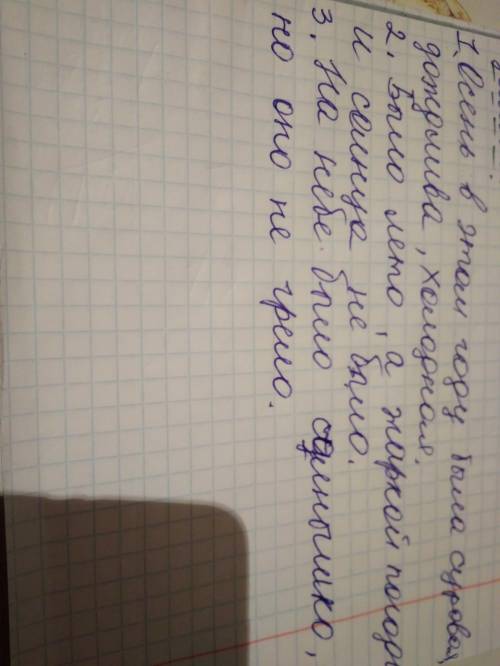 1. Осень в этом году была суровая,
дождлива, холодная.
2. Было лето, а жаркой погод
и солнца не было.
3. На небе было солнышко,
но оно не грело.